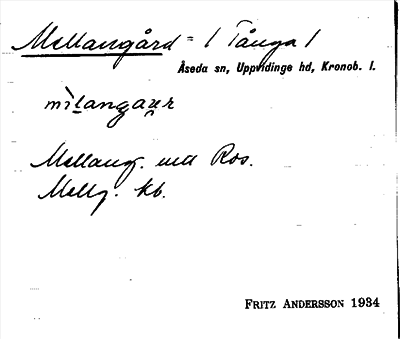 Mellangård = / Tånga /
Åseda sn, Uppvidinge hd, Kronob. l.
mìlangaur
Mellang. und Ros.
Mellg. kb.
FRITZ ANDERSSON 1934